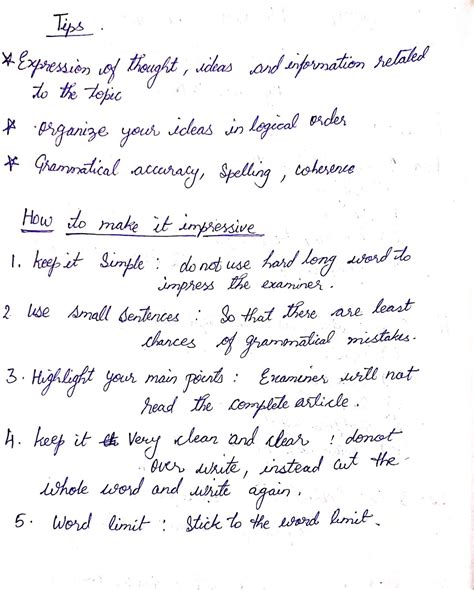 Tips.
* Expression of thought, ideas and information related
to the topic
* organize your ideas in logical order
* Grammatical accuracy, Spelling, coherence
How to make it impressive
1. keep it Simple : do not use hard long word to
impress the examiner.
2 use small sentences : So that there are least
chances of grammatical mistakes.
3. Highlight your main points : Examiner will not
read the complete article.
4. keep it Very clean and clear : donot
over write, instead cut the
whole word and write again.
5. Word limit : Stick to the word limit.